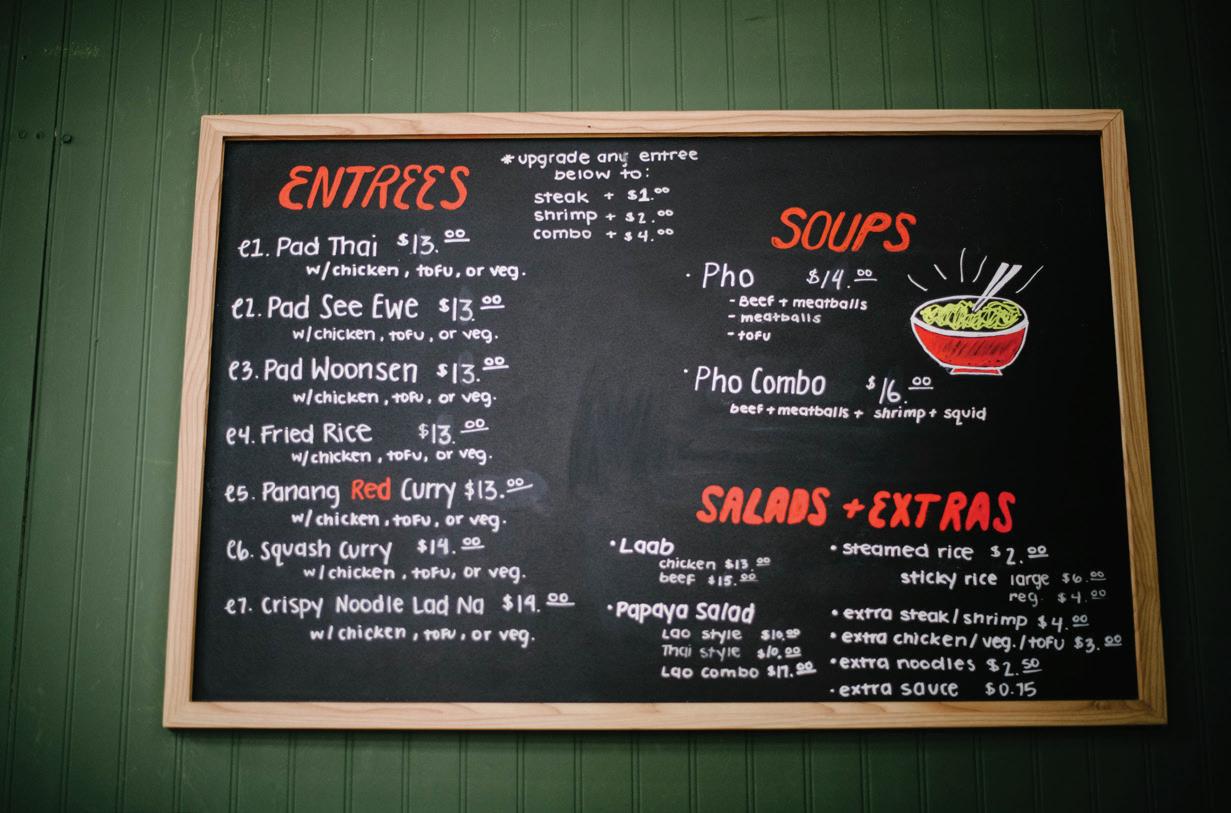 ENTREES
*upgrade any entree
below to:
steak + $1.00
shrimp + $2.00
combo + $4.00
e1. Pad Thai $13.00
w/chicken, tofu, or veg.
e2. Pad See Ewe $13.00
w/chicken, tofu, or veg.
e3. Pad Woonsen $13.00
w/chicken, tofu, or veg.
e4. Fried Rice $13.00
w/chicken, tofu, or veg.
e5. Panang Red Curry $13.00
w/chicken, tofu, or veg.
e6. Squash Curry $14.00
w/chicken, tofu, or veg.
e7. Crispy Noodle Lad Na $14.00
w/chicken, tofu, or veg.
SOUPS
· Pho $14.00
- Beef + meatballs
- meatballs
- tofu
· Pho Combo $16.00
beef + meatballs + shrimp + squid
SALADS + EXTRAS
· Laab
chicken $13.00
beef $15.00
· Papaya Salad
Lao style $10.00
Thai style $10.00
Lao combo $17.00
· steamed rice $2.00
sticky rice large $6.00
reg. $4.00
· extra steak/shrimp $4.00
· extra chicken/veg./tofu $3.00
· extra noodles $2.50
· extra sauce $0.75